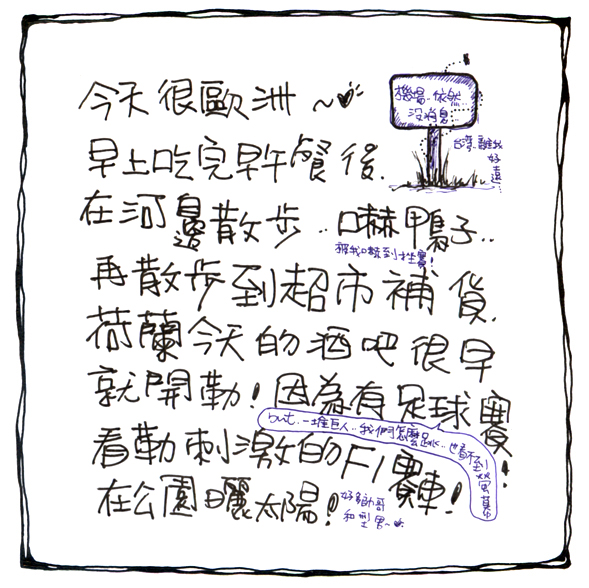 今天很歐洲~
機場..依然..
沒消息
台灣..離我
好遠
早上吃完早午餐後.
在河邊散步..嚇鴨子..
被我嚇到挫賽!
再散步到超市補貨.
荷蘭今天的酒吧很早
就開勒!因為有足球賽!
but..一堆巨人..我們怎麼跳..也看不到螢幕
看勒刺激的F1賽車!
在公園曬太陽!
好多帥哥
和型男~